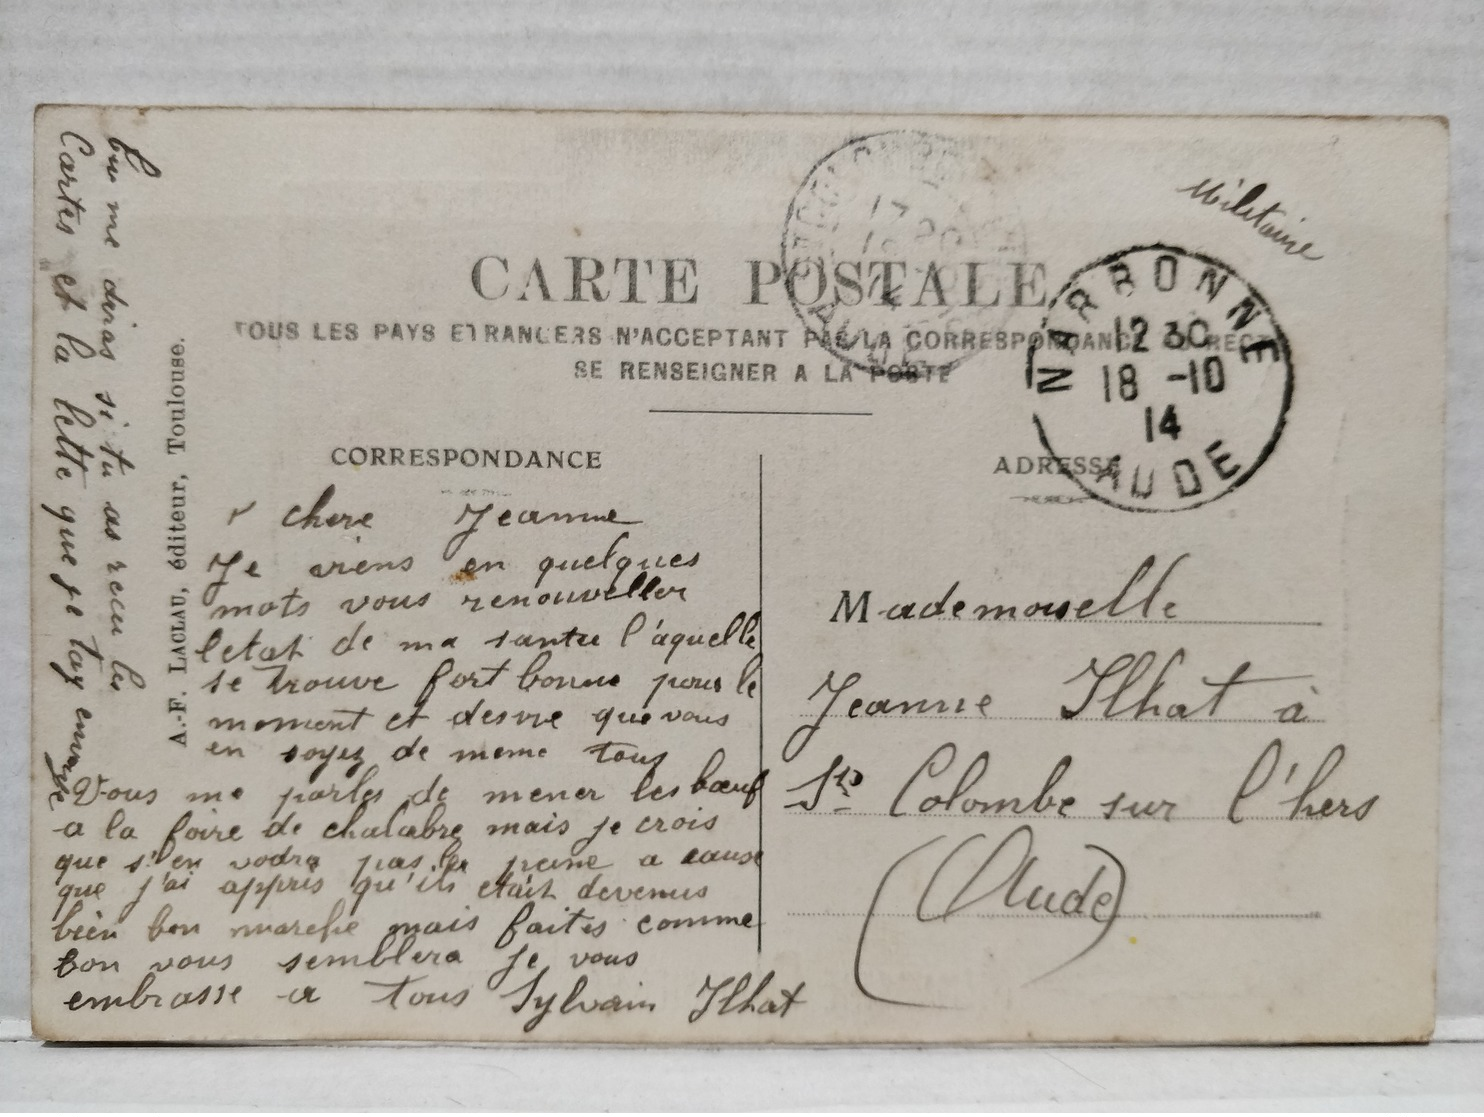 Militaire
CARTE POSTALE
TOUS LES PAYS ETRANGERS N'ACCEPTANT PAS LA CORRESPONDANCE AU RECTO
SE RENSEIGNER A LA POSTE
NARBONNE
12 30
18 -10
14
AUDE
CORRESPONDANCE
ADRESSE
chere Jeanne
Je viens en quelques
mots vous renouveller
letat de ma santee l'aquelle
se trouve fort bonne pour le
moment et desire que vous
en soyez de meme tous
Vous me parles de mener les bœuf
a la foire de chalabre mais je crois
que s'en vodra pas la peine a cause
que j'ai appris qu'ils etait devenus
bien bon marche mais faites comme
bon vous semblera je vous
embrasse a tous Sylvain Ilhat
tu me diras si tu as recu les
Cartes et la lette que je tay envoye
A.-F. LACLAU, éditeur, Toulouse.
Mademoiselle
Jeanne Ilhat à
Ste Colombe sur l'hers
(Aude)